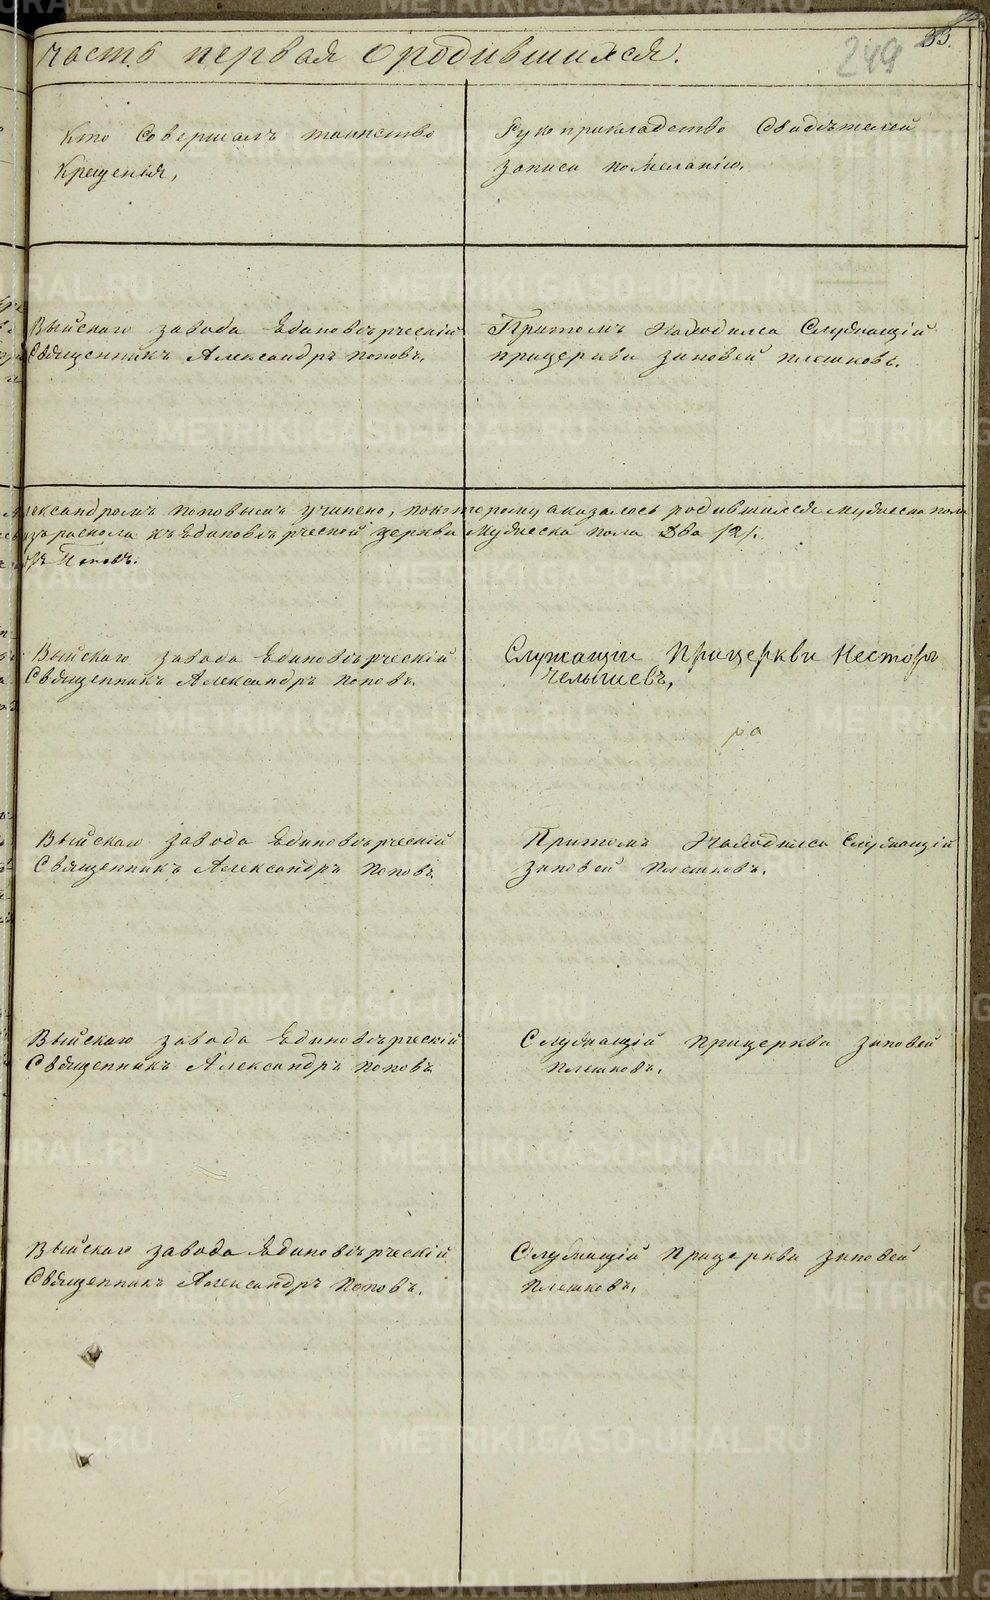 часть первая о родившихся.
249
33.
Кто совершалъ таинство
крещенія,
Рукоприкладство свидѣтелей
записи по желанію.
Выйскаго завода Единовѣрческій
Священникъ Александръ Поповъ.
Притомъ находился Служащій
прицеркви Зиновей Плешковъ.
Александромъ Поповымъ учинено, покоторому оказалось родившихся мужеска пола
изъ раскола къ Единовѣрческой церкви мужеска пола два /2/.
Поповъ.
Выйскаго завода Единовѣрческій
Священникъ Александръ Поповъ.
Служащіи Прицеркви Несторъ
Челышевъ,
Выйскаго завода Единовѣрческій
Священникъ Александръ Поповъ
Притомъ Находился Служащій
Зиновей Плешковъ.
Выйскаго завода Единовѣрческій
Священникъ Александръ Поповъ
Служащій Прицеркви Зиновей
Плешковъ.
Выйскаго завода Единовѣрческій
Священникъ Александръ Поповъ.
Служащій Прицеркви Зиновей
Плешковъ.
METRIKI.GASO-URAL.RU